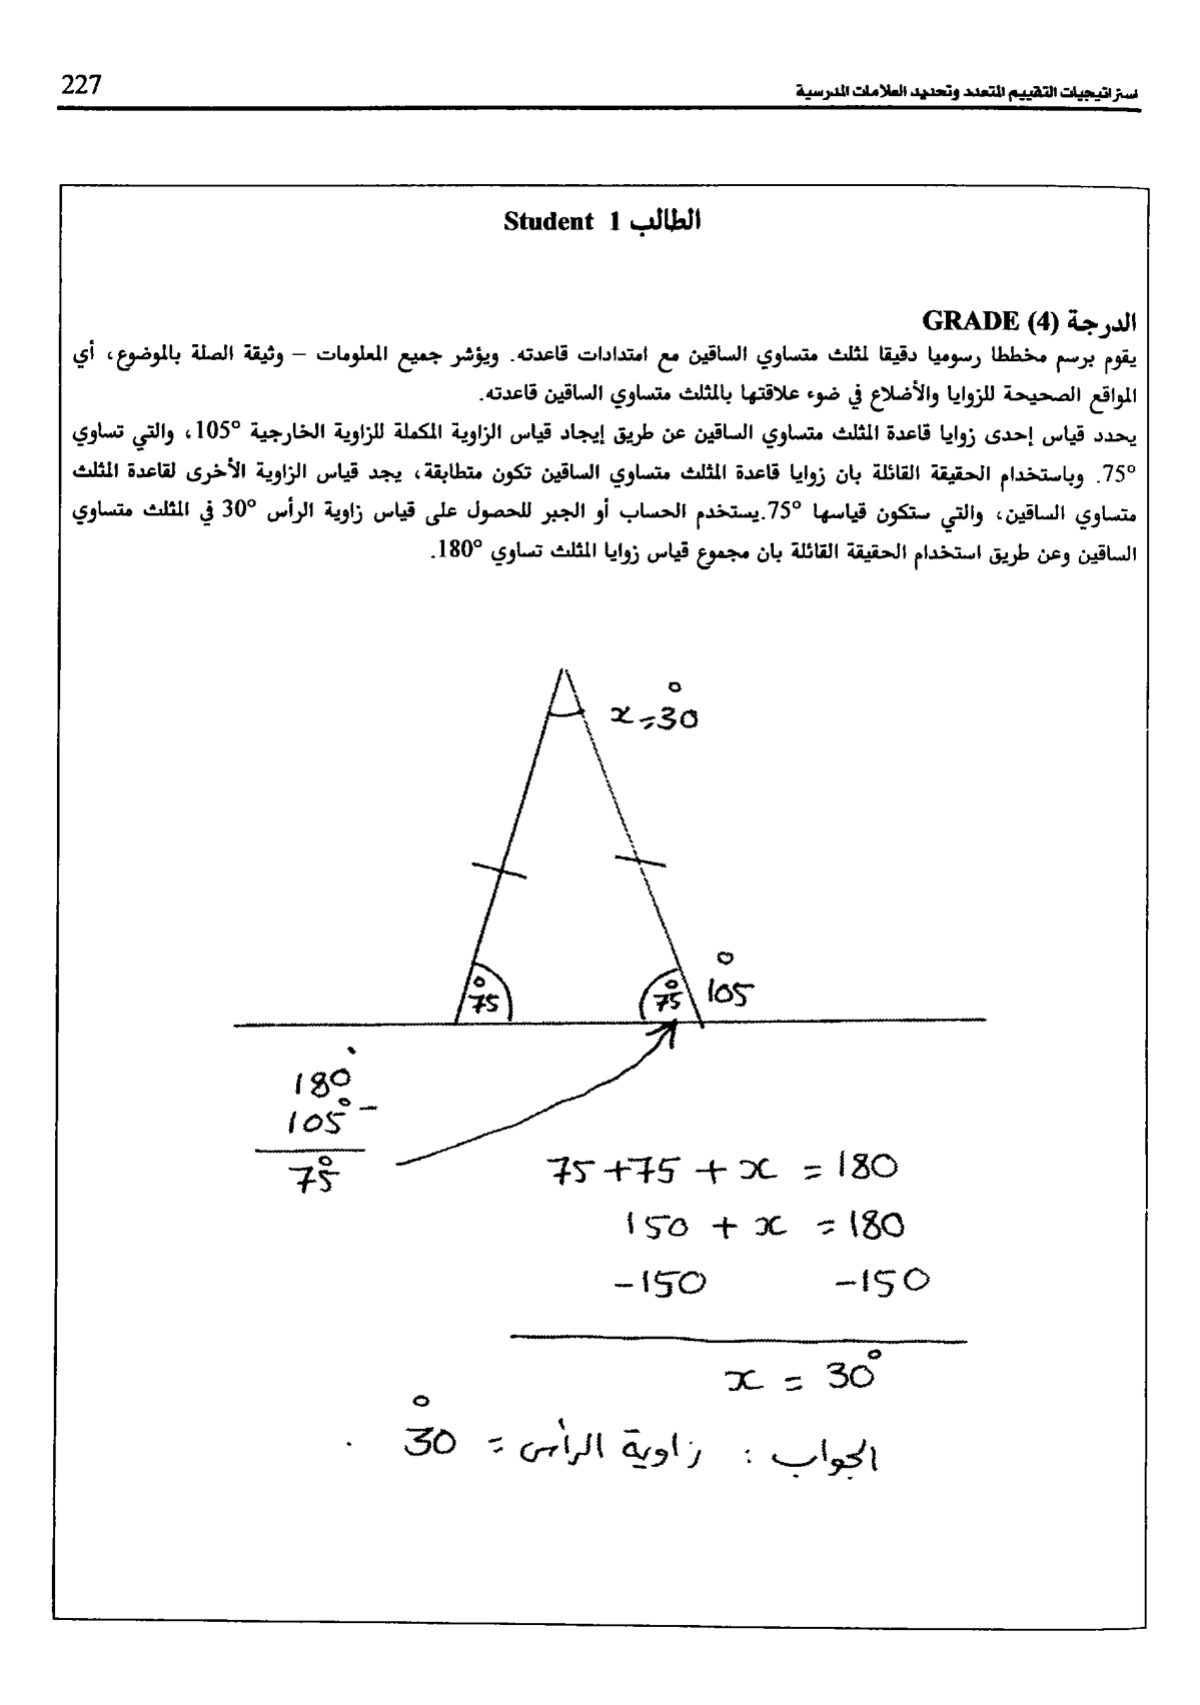 227
استراتيجيات التقييم المتعدد وتحديد العلامات المدرسية
الطالب Student 1
الدرجة GRADE (4)
يقوم برسم مخططا رسوميا دقيقا لمثلث متساوي الساقين مع امتدادات قاعدته. ويؤشر جميع المعلومات – وثيقة الصلة بالموضوع، أي
المواقع الصحيحة للزوايا والأضلاع في ضوء علاقتها بالمثلث متساوي الساقين قاعدته.
يحدد قياس إحدى زوايا قاعدة المثلث متساوي الساقين عن طريق إيجاد قياس الزاوية المكملة للزاوية الخارجية 105°، والتي تساوي
75°. وباستخدام الحقيقة القائلة بان زوايا قاعدة المثلث متساوي الساقين تكون متطابقة، يجد قياس الزاوية الأخرى لقاعدة المثلث
متساوي الساقين، والتي ستكون قياسها 75°.يستخدم الحساب أو الجبر للحصول على قياس زاوية الرأس 30° في المثلث متساوي
الساقين وعن طريق استخدام الحقيقة القائلة بان مجموع قياس زوايا المثلث تساوي 180°.
x=30°
75° 75° 105°
180°
105° –
75°
75+75+x = 180
150 + x = 180
-150 -150
x = 30°
الجواب : زاوية الرأس = 30° .